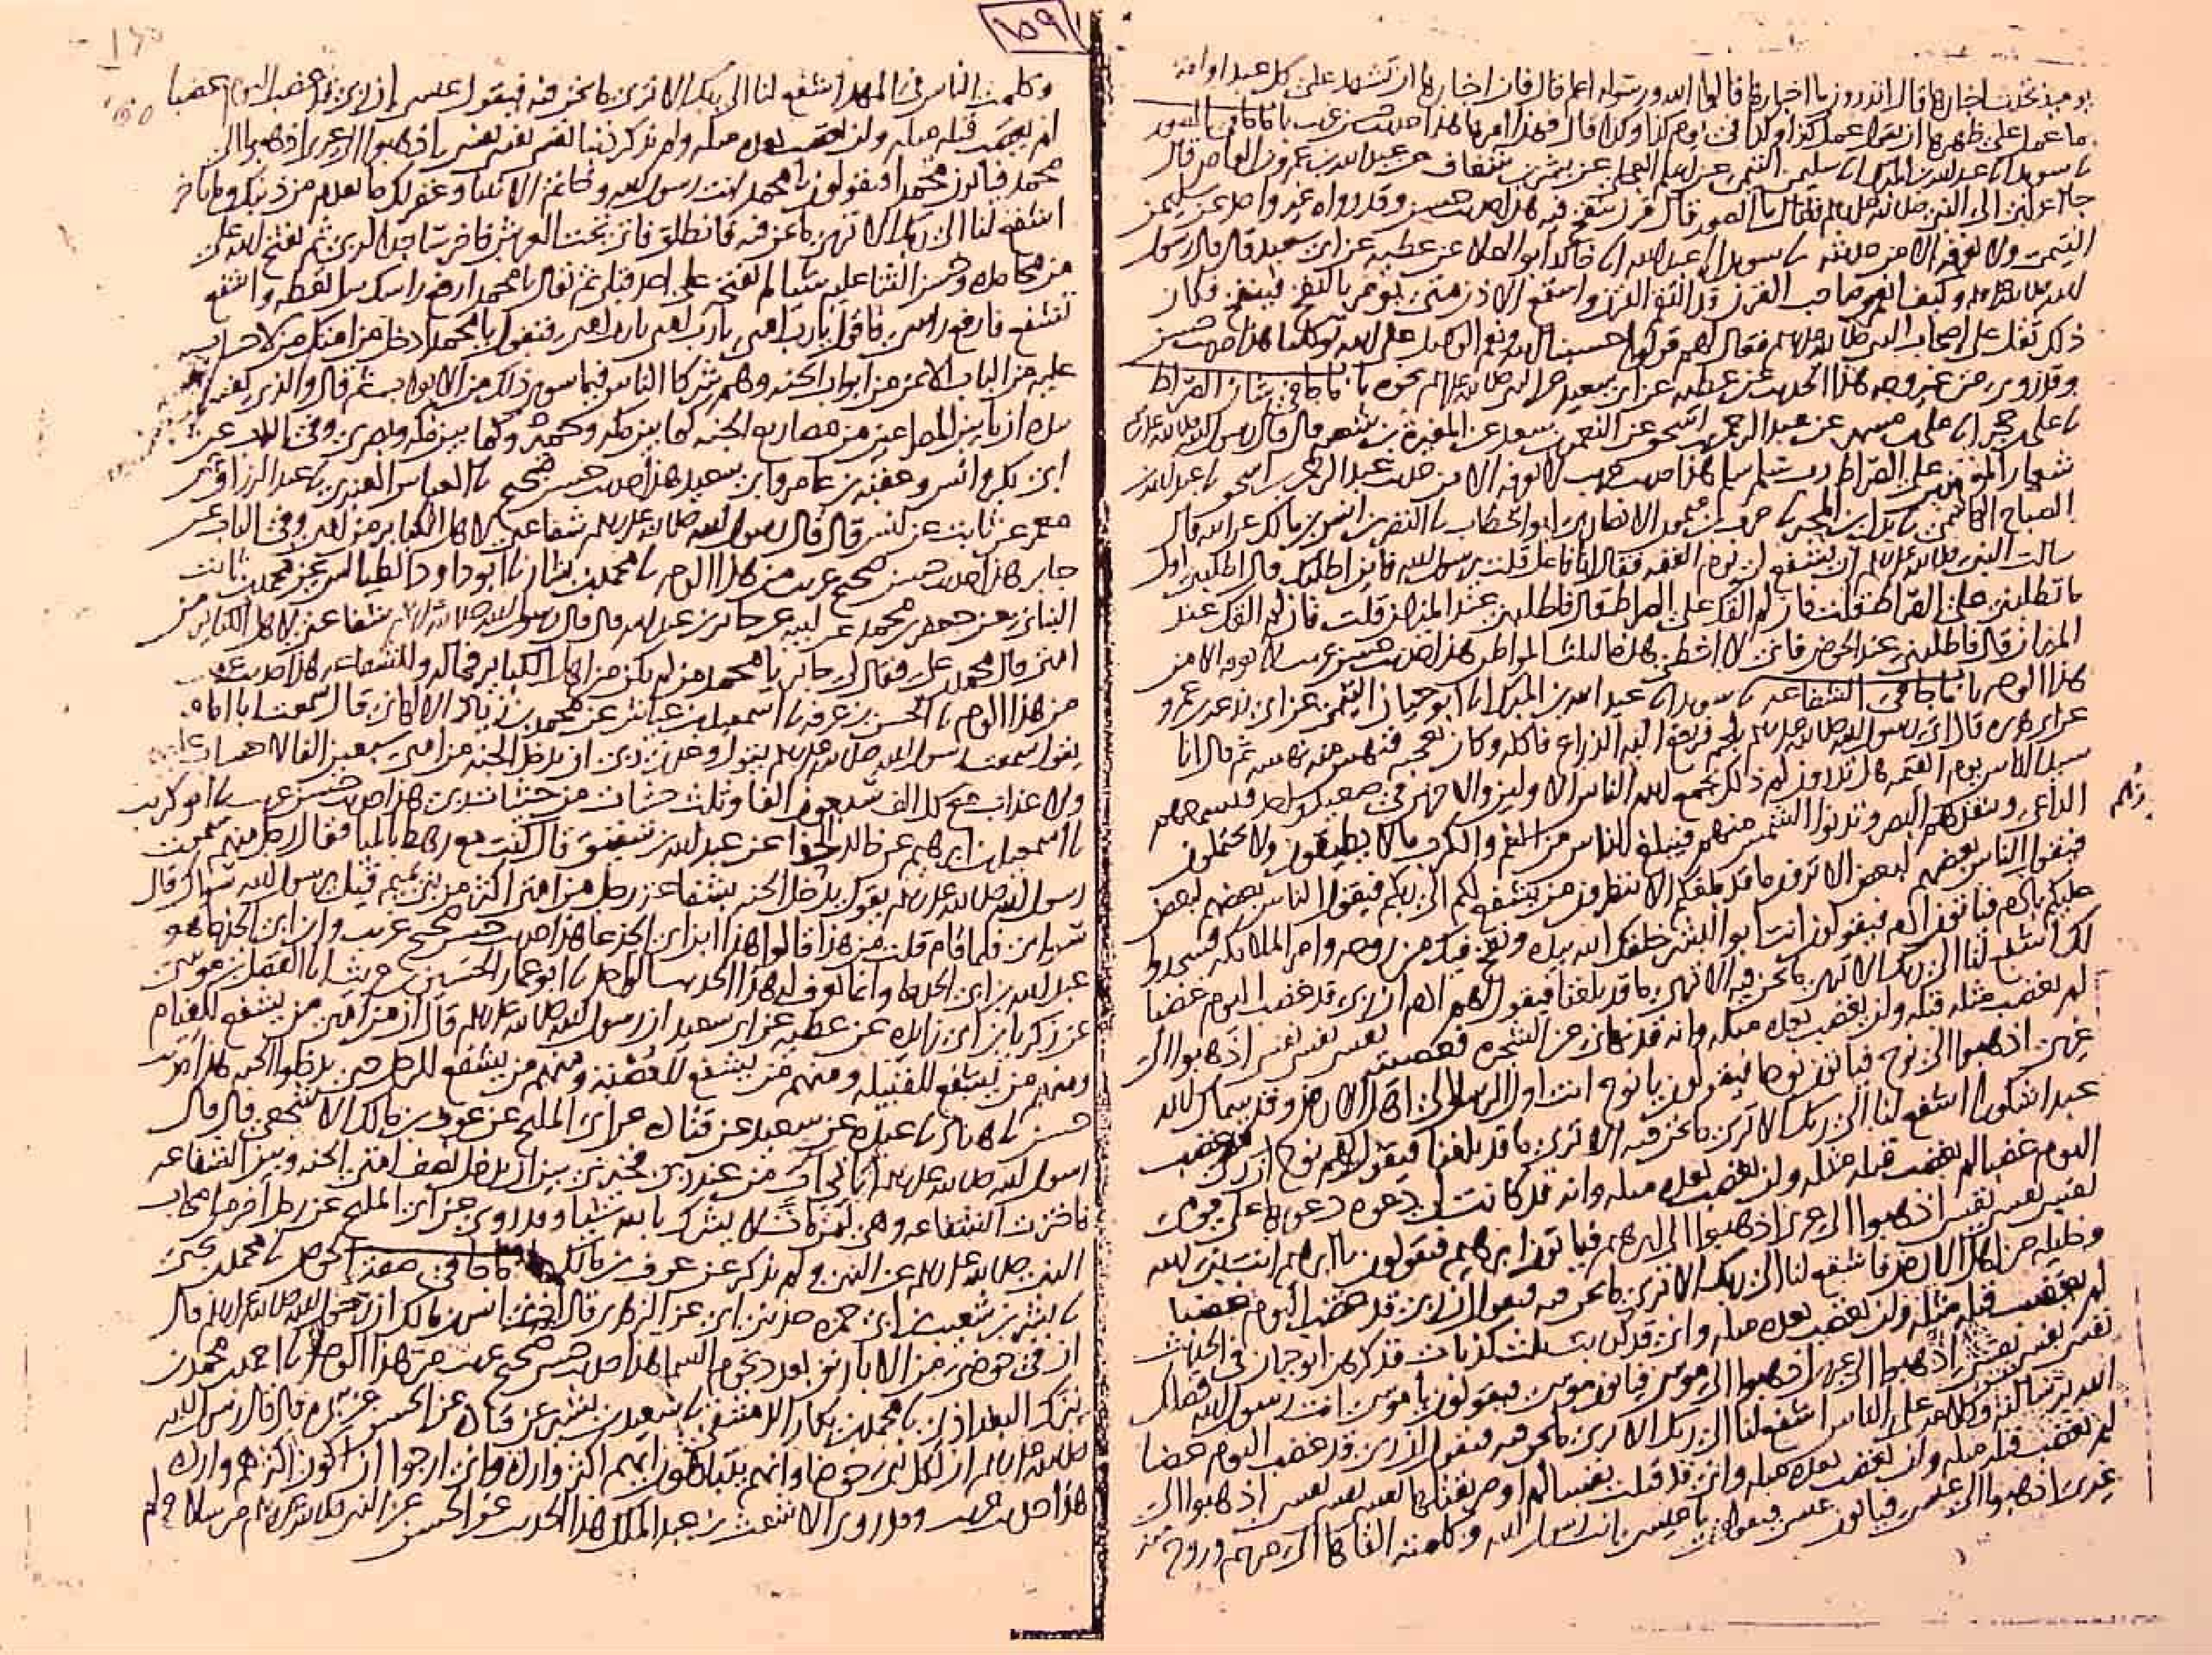 يوميذ تحدث اخبارها قال اتدرون ما اخبارها قالوا الله ورسوله اعلم قال فان اخبارها ان تشهد على كل عبد او امة
ما عمل على ظهرها ان تقول عمل كذا وكذا في يوم كذا وكذا قال فهذا امرها هذا حديث حسن غريب باب ما جا في الصور
نا سويد انا عبد الله بن المبارك انا سليمن التيمي عن اسلم العجلي عن بشر بن شغاف عن عبد الله بن عمرو بن العاص قال
جا اعرابي الى النبي صلى الله عليه وسلم فقال ما الصور قال قرن ينفخ فيه هذا حديث حسن وقد رواه غير واحد عن سليمن
التيمي ولا نعرفه الا من حديثه نا سويد انا عبد الله انا خالد ابو العلا عن عطية عن ابي سعيد قال قال رسول
الله صلى الله عليه وسلم وكيف انعم وصاحب القرن قد التقم القرن واستمع الاذن متى يومر بالنفخ فينفخ فكان
ذلك ثقل على اصحاب النبي صلى الله عليه وسلم فقال لهم قولوا حسبنا الله ونعم الوكيل على الله توكلنا هذا حديث حسن
وقد روي من غير وجه هذا الحديث عن عطية عن ابي سعيد عن النبي صلى الله عليه وسلم نحوه باب ما جا في شان الصراط
نا علي بن حجر انا علي بن مسهر عن عبد الرحمن بن اسحق عن النعمن بن سعد عن المغيرة بن شعبة قال قال رسول الله صلى الله عليه وسلم
شعار المومنين على الصراط رب سلم سلم هذا حديث غريب لا نعرفه الا من حديث عبد الرحمن بن اسحق نا عبد الله بن
الصباح الهاشمي نا بدل بن المحبر نا حرب بن ميمون الانصاري ابو الخطاب نا النضر بن انس بن مالك عن ابيه قال
سالت النبي صلى الله عليه وسلم ان يشفع لي يوم القيمة فقال انا فاعل قلت يرسول الله فاين اطلبك قال اطلبني اول
ما تطلبني على الصراط قلت فان لم القك على الصراط قال فاطلبني عند الميزان قلت فان لم القك عند
الميزان قال فاطلبني عند الحوض فاني لا اخطي هذه الثلث المواطن هذا حديث حسن غريب لا نعرفه الا من
هذا الوجه باب ما جا في الشفاعة نا سويد انا عبد الله بن المبارك انا ابو حيان التيمي عن ابي زرعة بن عمرو
عن ابي هريرة قال اتي رسول الله صلى الله عليه وسلم بلحم فرفع اليه الذراع فاكله وكان يعجبه فنهس منه نهسة ثم قال انا
سيد الناس يوم القيمة هل تدرون لم ذلك يجمع الله الناس الاولين والاخرين في صعيد واحد فيسمعهم
الداعي وينفذهم البصر وتدنوا الشمس منهم فيبلغ الناس من الغم والكرب ما لا يطيقون ولا يحتملون
فيقول الناس بعضهم لبعض الا ترون ما قد بلغكم الا تنظرون من يشفع لكم الى ربكم فيقول الناس بعضهم لبعض
عليكم بادم فياتون ادم فيقولون انت ابو البشر خلقك الله بيده ونفخ فيك من روحه وامر الملائكة فسجدوا
لك اشفع لنا الى ربك الا ترى ما نحن فيه الا ترى ما قد بلغنا فيقول لهم ادم ان ربي قد غضب اليوم غضبا
لم يغضب مثله قبله ولن يغضب بعده مثله وانه قد نهاني عن الشجرة فعصيت نفسي نفسي نفسي اذهبوا الى
غيري اذهبوا الى نوح فياتون نوحا فيقولون يا نوح انت اول الرسل الى اهل الارض وقد سماك الله
عبدا شكورا اشفع لنا الى ربك الا ترى ما نحن فيه الا ترى ما قد بلغنا فيقول لهم نوح ان ربي قد غضب
اليوم غضبا لم يغضب قبله مثله ولن يغضب بعده مثله وانه قد كانت لي دعوة دعوتها على قومي
نفسي نفسي نفسي اذهبوا الى غيري اذهبوا الى ابرهيم فياتون ابرهيم فيقولون يا ابرهيم انت نبي الله
وخليله من اهل الارض فاشفع لنا الى ربك الا ترى ما نحن فيه فيقول ان ربي قد غضب اليوم غضبا
لم يغضب قبله مثله ولن يغضب بعده مثله واني قد كذبت ثلث كذبات فذكرهن ابو حيان في الحديث
نفسي نفسي نفسي اذهبوا الى غيري اذهبوا الى موسى فياتون موسى فيقولون يا موسى انت رسول الله فضلك
الله برسالته وكلامه على الناس اشفع لنا الى ربك الا ترى ما نحن فيه فيقول ان ربي قد غضب اليوم غضبا
لم يغضب قبله مثله ولن يغضب بعده مثله واني قد قتلت نفسا لم اومر بقتلها نفسي نفسي نفسي اذهبوا الى
غيري اذهبوا الى عيسى فياتون عيسى فيقولون يا عيسى انت رسول الله وكلمته القاها الى مريم وروح منه
زعم
١٥٩
وكلمت الناس في المهد اشفع لنا الى ربك الا ترى ما نحن فيه فيقول عيسى ان ربي قد غضب اليوم غضبا
لم يغضب قبله مثله ولن يغضب بعده مثله ولم يذكر ذنبا نفسي نفسي نفسي اذهبوا الى غيري اذهبوا الى
محمد فياتون محمدا فيقولون يا محمد انت رسول الله وخاتم الانبيا وغفر لك ما تقدم من ذنبك وما تاخر
اشفع لنا الى ربك الا ترى ما نحن فيه فانطلق فاتي تحت العرش فاخر ساجدا لربي ثم يفتح الله علي
من محامده وحسن الثنا عليه شيا لم يفتحه على احد قبلي ثم يقال يا محمد ارفع راسك سل تعطه واشفع
تشفع فارفع راسي فاقول يا رب امتي يا رب امتي يا رب امتي فيقول يا محمد ادخل من امتك من لا حساب
عليه من الباب الايمن من ابواب الجنة وهم شركا الناس فيما سوى ذلك من الابواب ثم قال والذي نفسي
بيده ان ما بين المصراعين من مصاريع الجنة كما بين مكة وحمير وكما بين مكة وبصرى وفي الباب عن
ابي بكر وانس وعقبة بن عامر وابي سعيد هذا حديث حسن صحيح نا العباس العنبري نا عبد الرزاق عن
معمر عن ثابت عن انس قال قال رسول الله صلى الله عليه وسلم شفاعتي لاهل الكباير من امتي وفي الباب عن
جابر هذا حديث حسن صحيح غريب من هذا الوجه نا محمد بن بشار نا ابو داود الطيالسي عن محمد بن ثابت
البناني عن جعفر بن محمد عن ابيه عن جابر بن عبد الله قال قال رسول الله صلى الله عليه وسلم شفاعتي لاهل الكباير من
امتي قال محمد بن علي فقال لي جابر يا محمد من لم يكن من اهل الكباير فما له وللشفاعة هذا حديث غريب
من هذا الوجه نا الحسن بن عرفة نا اسمعيل بن عياش عن محمد بن زياد الالهاني قال سمعت ابا امامة
يقول سمعت رسول الله صلى الله عليه وسلم يقول وعدني ربي ان يدخل الجنة من امتي سبعين الفا لا حساب عليهم
ولا عذاب مع كل الف سبعون الفا وثلث حثيات من حثيات ربي هذا حديث حسن غريب نا ابو كريب
نا اسمعيل بن ابرهيم عن خالد الحذا عن عبد الله بن شقيق قال كنت مع رهط بايليا فقال رجل منهم سمعت
رسول الله صلى الله عليه وسلم يقول يدخل الجنة بشفاعة رجل من امتي اكثر من بني تميم قيل يرسول الله سواك قال
سواي فلما قام قلت من هذا قالوا هذا ابن ابي الجذعا هذا حديث حسن صحيح غريب وابن ابي الجذعا هو
عبد الله بن ابي الجذعا وانما يعرف له هذا الحديث الواحد نا ابو عمار الحسين بن حريث انا الفضل بن موسى
عن زكريا بن ابي زايدة عن عطية عن ابي سعيد ان رسول الله صلى الله عليه وسلم قال ان من امتي من يشفع للفيام
ومنهم من يشفع للقبيلة ومنهم من يشفع للعصبة ومنهم من يشفع للرجل حتى يدخلوا الجنة هذا حديث
حسن نا هناد نا عبدة عن سعيد عن قتادة عن ابي المليح عن عوف بن مالك الاشجعي قال قال
رسول الله صلى الله عليه وسلم اتاني ات من عند ربي فخيرني بين ان يدخل نصف امتي الجنة وبين الشفاعة
فاخترت الشفاعة وهي لمن مات لا يشرك بالله شيا وقد روي عن ابي المليح عن رجل اخر من اصحاب
النبي صلى الله عليه وسلم عن النبي ولم يذكر عن عوف بن مالك باب ما جا في صفة الحوض نا محمد بن يحيى
نا بشر بن شعيب بن ابي حمزة حدثني ابي عن الزهري قال اخبرني انس بن مالك ان رسول الله صلى الله عليه وسلم قال
ان في حوضي من الاباريق بعدد نجوم السما هذا حديث حسن صحيح غريب من هذا الوجه نا احمد بن محمد بن
نيزك البغدادي نا محمد بن بكار الدمشقي نا سعيد بن بشير عن قتادة عن الحسن عن سمرة قال قال رسول الله
صلى الله عليه وسلم ان لكل نبي حوضا وانهم يتباهون ايهم اكثر واردة واني ارجوا ان اكون اكثرهم واردة
هذا حديث غريب وقد روى الاشعث بن عبد الملك هذا الحديث عن الحسن عن النبي صلى الله عليه وسلم مرسلا ولم